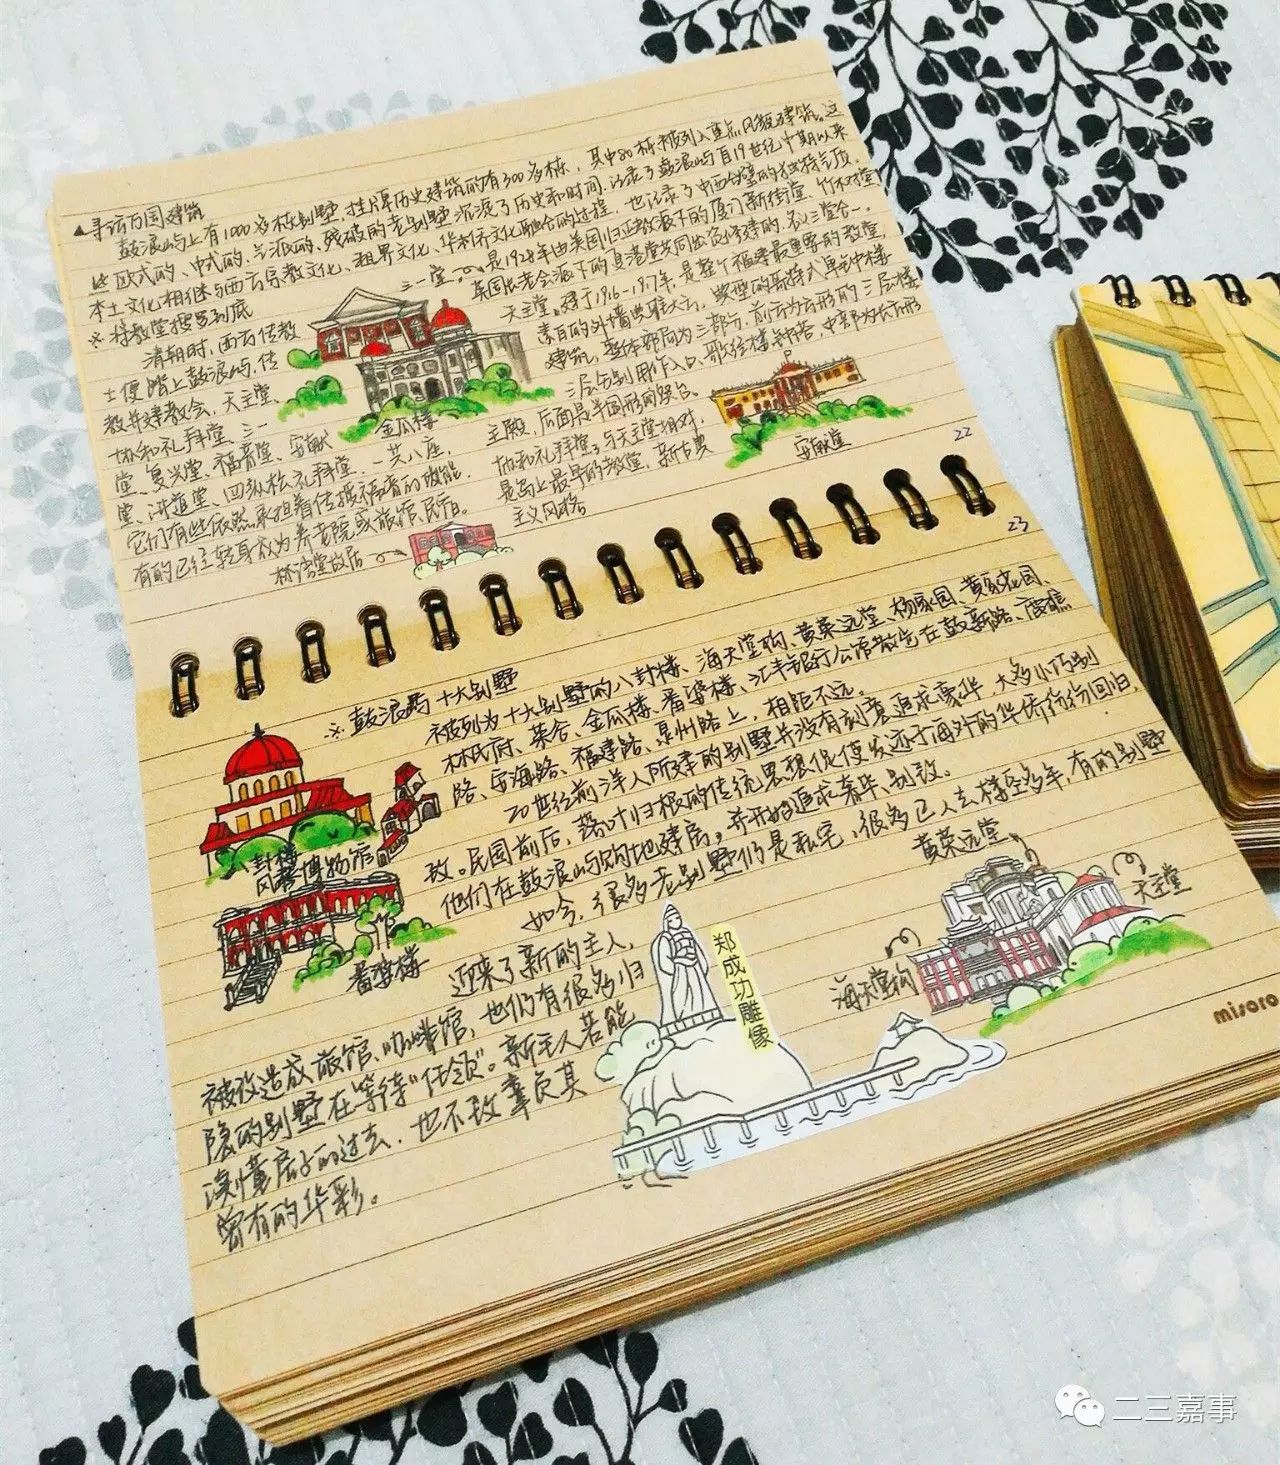 ▲寻访万国建筑
鼓浪屿上有1000多栋别墅，挂牌历史建筑的有300多栋，其中80栋被列入重点风貌建筑。这
些欧式的、中式的、残破的老别墅沉淀了历史和时间，记录了鼓浪屿自19世纪中期以来
本土文化相继与西方宗教文化、租界文化、华侨文化融合的过程，也记录了中西合璧的独特气质。
※将教堂搜罗到底
清朝时，西方传教
士便踏上鼓浪屿，传
教并建教会，天主堂、
协和礼拜堂、三一
堂、复兴堂、福音堂、安献
堂、讲道堂、四枞松礼拜堂，一共八座，
它们有些依然承担着传播福音的功能，
有的已经转身成为养老院或旅馆、民宿。
林语堂故居
三一堂
是1928年由英国归正教派下的厦门新街堂、竹树堂
英国长老会派下的复兴堂共同出资修建的，名
天主堂。建于1916-1917年，是整个福建最重要的教堂，
素白的外墙典雅大方，典型的哥特式单钟楼
建筑，整体布局为三部分，前方为方形的三层楼
三层分别用作入口、歌经楼和钟塔，中部为长方形
主殿，后面是半圆形的祭台。
协和礼拜堂。与天主堂相对，
是岛上最早的教堂，新古典
主义风格
金瓜楼
安献堂
22
23
※鼓浪屿十大别墅
被列为十大别墅的八卦楼、海天堂构、黄荣远堂、杨家园、黄家花园、
林氏府、菜舍、金瓜楼、番婆楼、汇丰银行公馆散落在鼓新路、鹿礁
路、安海路、福建路、泉州路上，相距不远。
20世纪前洋人所建的别墅并没有刻意追求豪华，大多小巧别
致。民国前后，落叶归根的传统思想促使发迹于海外的华侨纷纷回归，
他们在鼓浪屿购地建房，并开始追求奢华、别致。
如今，很多老别墅仍是私宅，很多已人去楼空多年，有的别墅
迎来了新的主人，
被改造成旅馆、咖啡馆，也仍有很多归
隐的别墅在等待“任领”。新主人若能
读懂房子的过去，也不致辜负其
曾有的华彩。
八卦楼
风琴博物馆
番婆楼
黄荣远堂
天主堂
海天堂构
郑成功雕像
misoro
二三嘉事